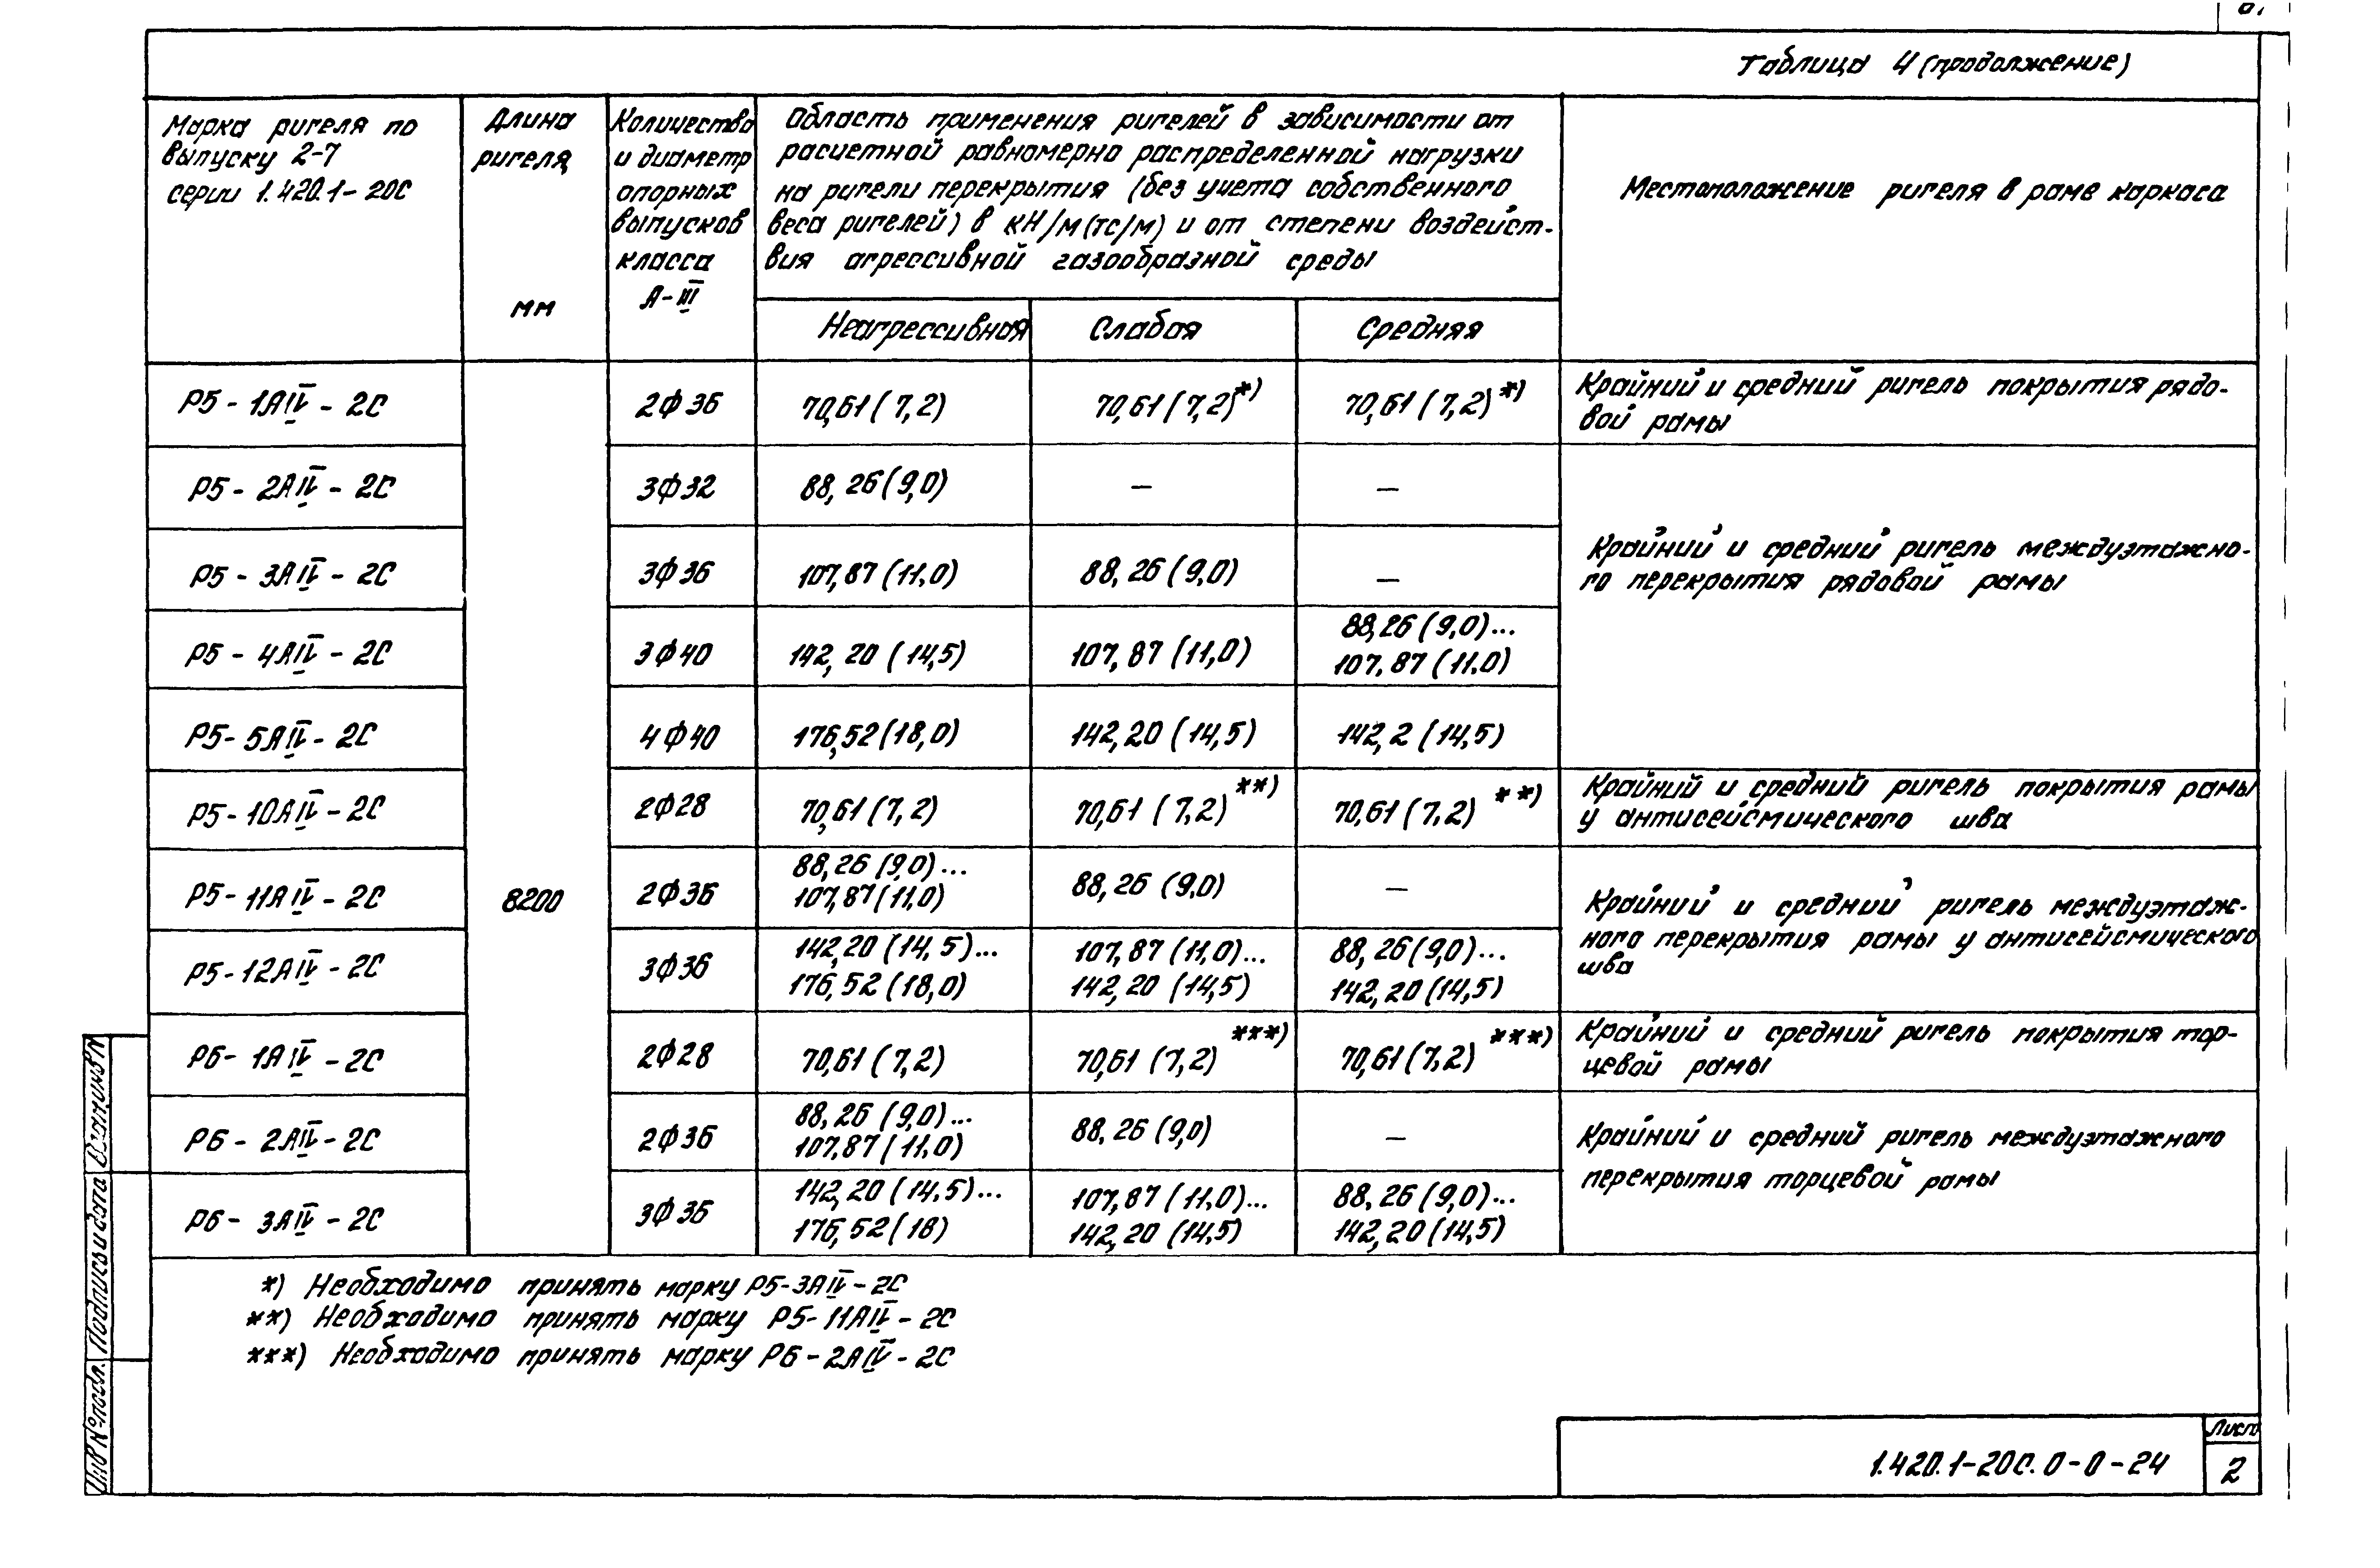 Таблица 4 (продолжение)
Марка ригеля по
выпуску 2-7
серии 1.420.1-20С
Длина
ригеля,
мм
Количество
и диаметр
опорных
выпусков
класса
А-III
Область применения ригелей в зависимости от
расчетной равномерно распределенной нагрузки
на ригели перекрытия (без учета собственного
веса ригелей) в кН/м (тс/м) и от степени воздейст-
вия агрессивной газообразной среды
Неагрессивная
Слабая
Средняя
Местоположение ригеля в раме каркаса
Р5-1АIV-2С 2Ф36 70,61 (7,2) 70,61 (7,2)*) 70,61 (7,2)*)
Крайний и средний ригель покрытия рядо-
вой рамы
Р5-2АIV-2С 3Ф32 88,26 (9,0) – –
Р5-3АIV-2С 3Ф36 107,87 (11,0) 88,26 (9,0) –
Крайний и средний ригель междуэтажно-
го перекрытия рядовой рамы
Р5-4АIV-2С 3Ф40 142,20 (14,5) 107,87 (11,0) 88,26 (9,0)...
107,87 (11,0)
Р5-5АIV-2С 4Ф40 176,52 (18,0) 142,20 (14,5) 142,2 (14,5)
Р5-10АIV-2С 2Ф28 70,61 (7,2) 70,61 (7,2)**) 70,61 (7,2)**)
Крайний и средний ригель покрытия рамы
у антисейсмического шва
8200
Р5-11АIV-2С 2Ф36 88,26 (9,0)...
107,87 (11,0)
88,26 (9,0) –
Крайний и средний ригель междуэтаж-
ного перекрытия рамы у антисейсмического
шва
Р5-12АIV-2С 3Ф36 142,20 (14,5)... 107,87 (11,0)... 88,26 (9,0)...
176,52 (18,0) 142,20 (14,5) 142,20 (14,5)
Р6-1АIV-2С 2Ф28 70,61 (7,2) 70,61 (7,2)***) 70,61 (7,2)***)
Крайний и средний ригель покрытия тор-
цевой рамы
Р6-2АIV-2С 2Ф36 88,26 (9,0)...
107,87 (11,0)
88,26 (9,0) –
Крайний и средний ригель междуэтажного
перекрытия торцевой рамы
Р6-3АIV-2С 3Ф36 142,20 (14,5)... 107,87 (11,0)... 88,26 (9,0)...
176,52 (18) 142,20 (14,5) 142,20 (14,5)
*) Необходимо принять марку Р5-3АIV-2С
**) Необходимо принять марку Р5-11АIV-2С
***) Необходимо принять марку Р6-2АIV-2С
Инв № подл. Подпись и дата Взам инв №
1.420.1-20С.0-0-24
Лист
2